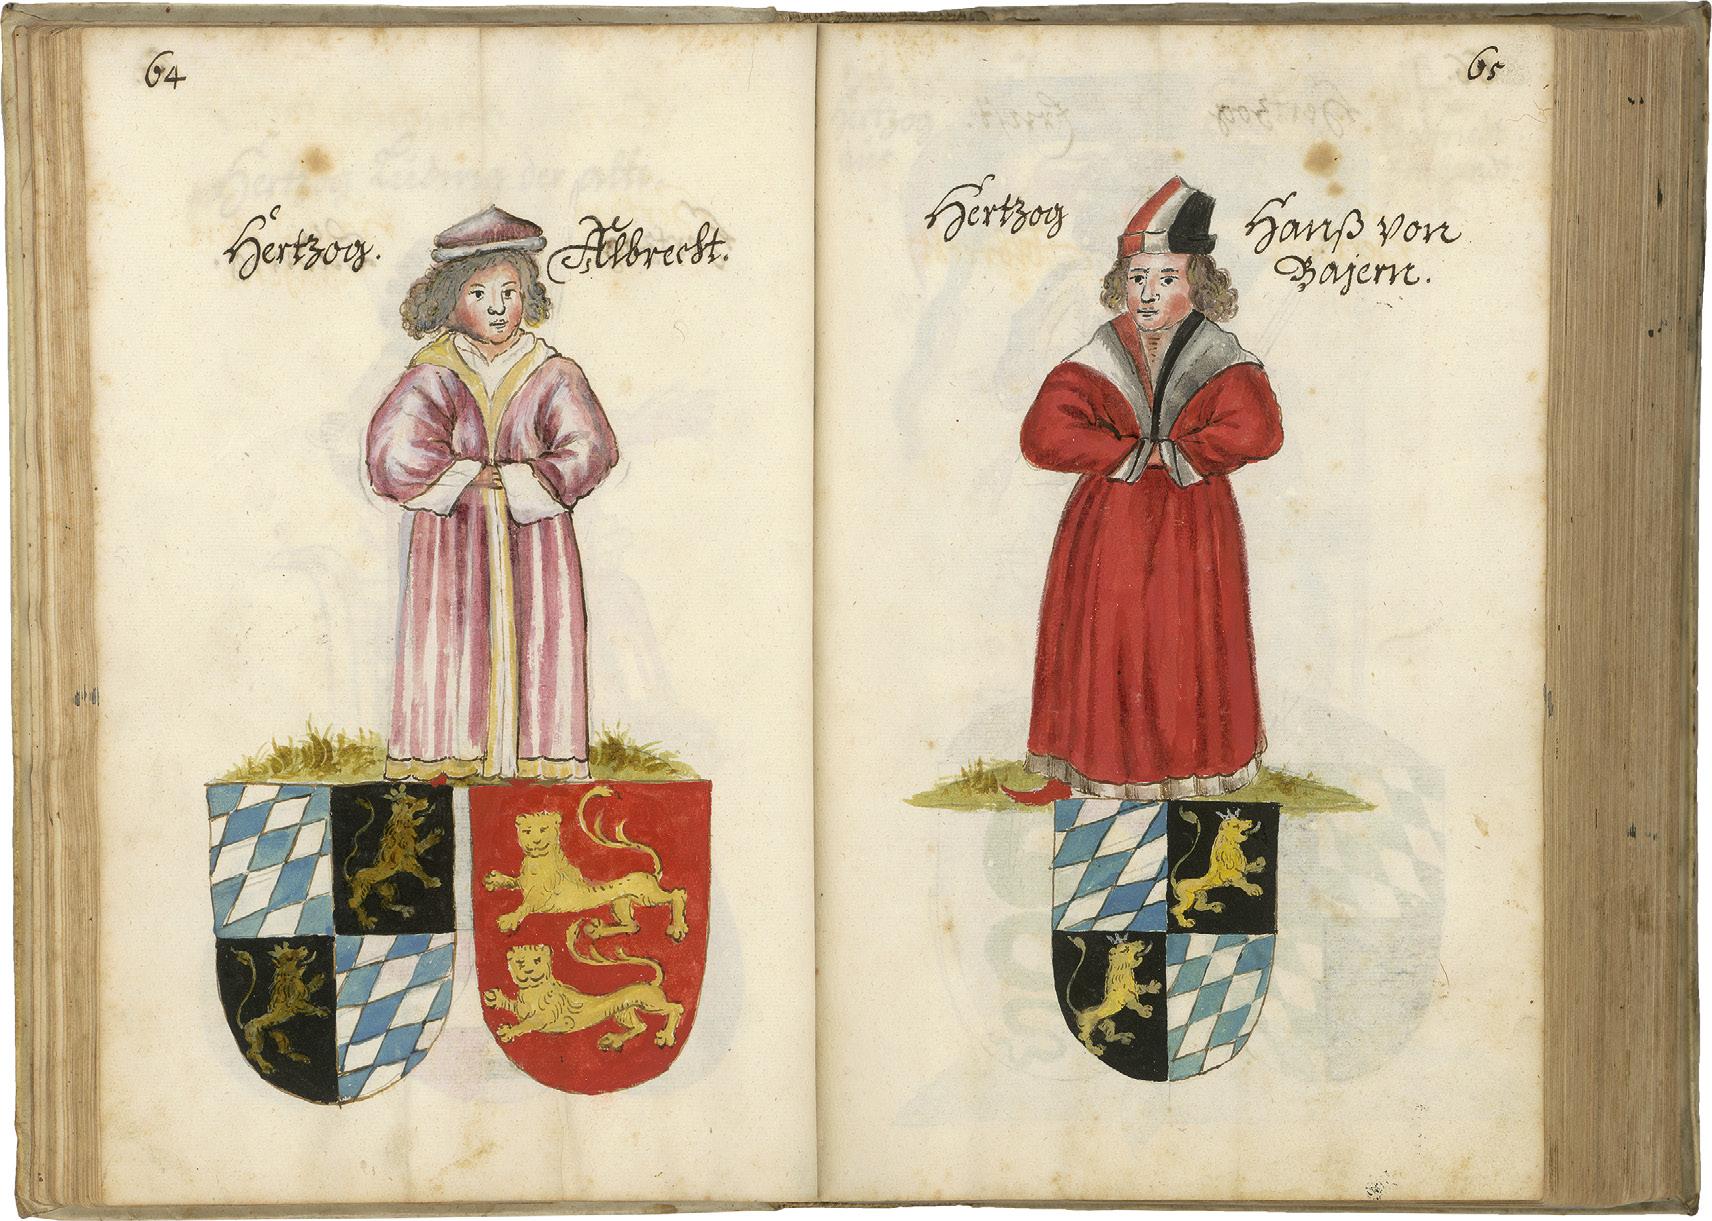 64
Hertzog. Albrecht.
65
Hertzog Hanß von
Bajern.